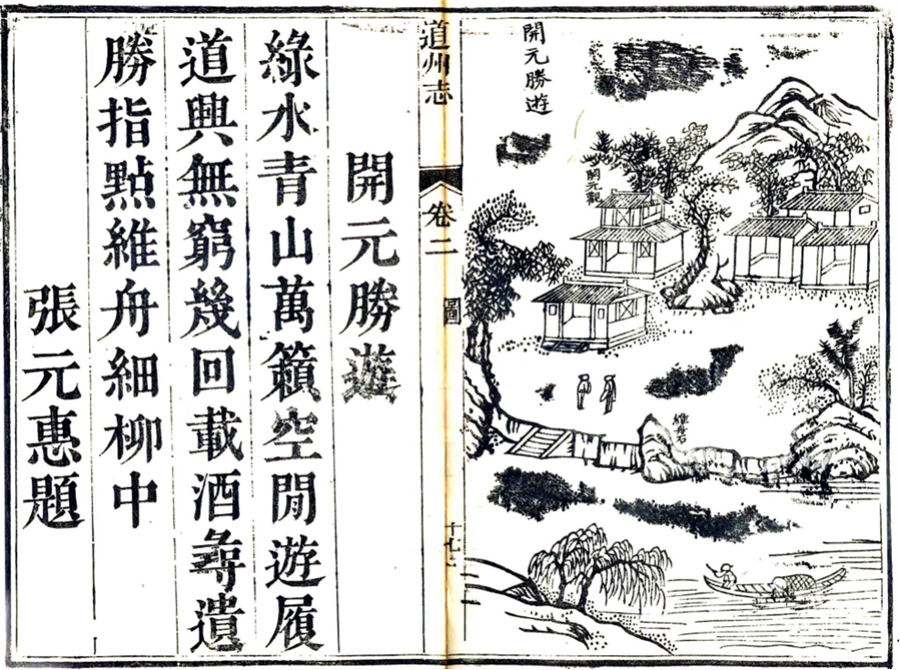 開元勝遊
開元觀
維舟石
道州志
卷二
圖
十七
開元勝遊
綠水青山萬籟空閒遊履
道興無窮幾回載酒尋遺
勝指點維舟細柳中
張元惠題